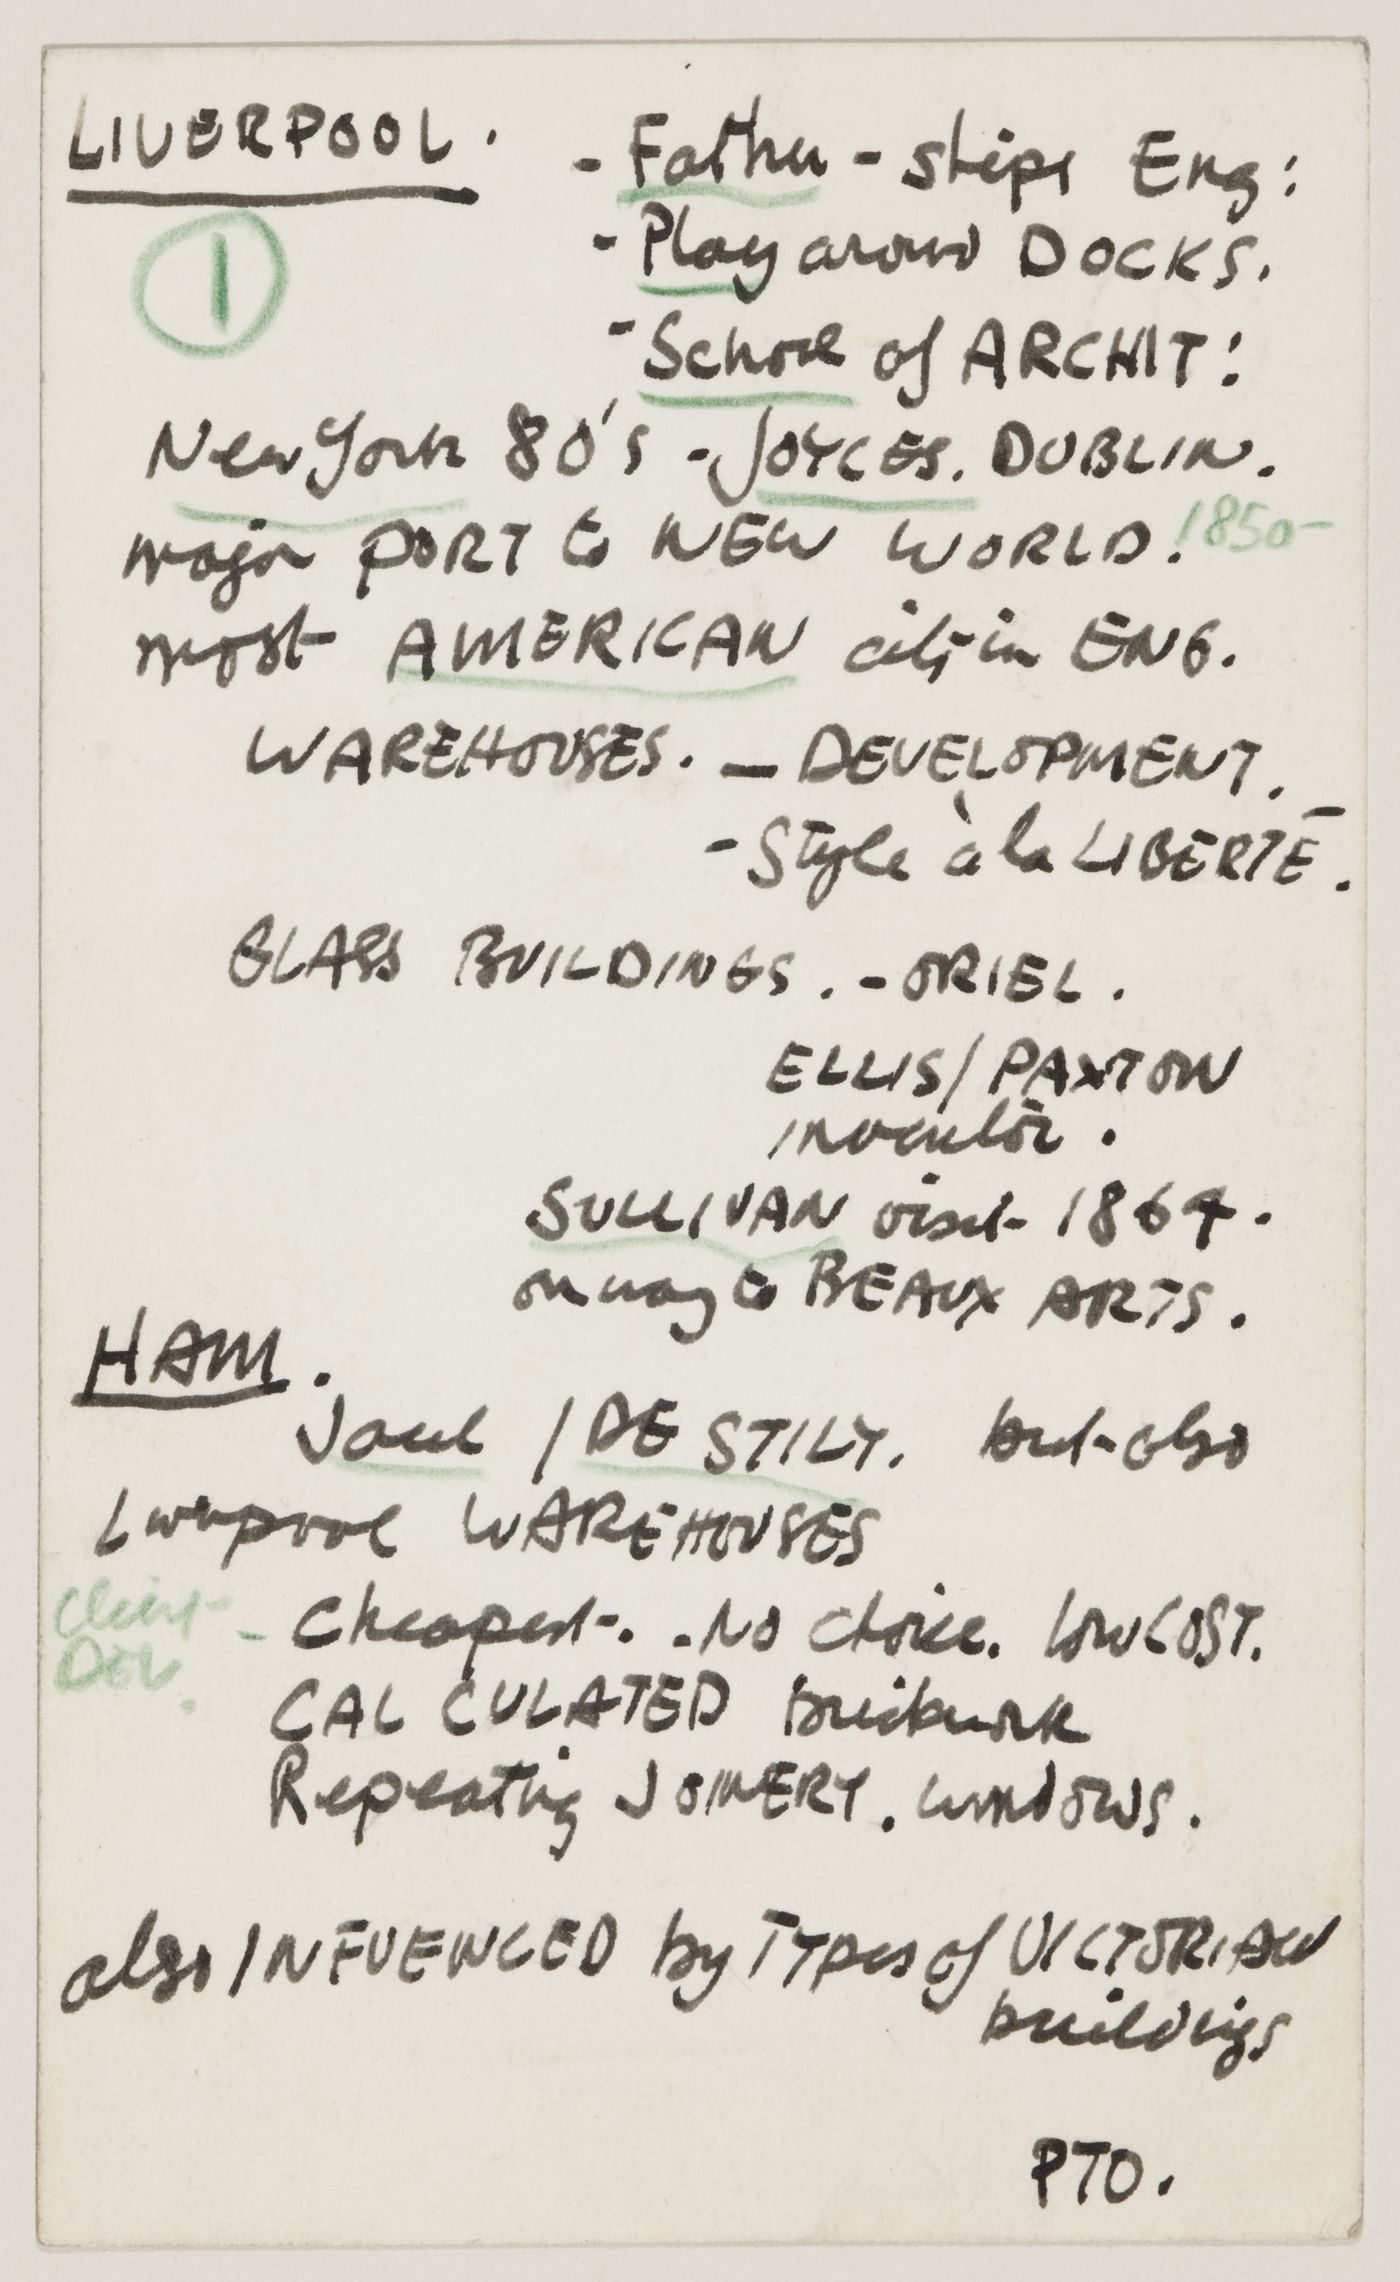 LIVERPOOL. - Father - ships Eng:
①
- Play around DOCKS.
- School of ARCHIT:
New York 80's - JOYCES. DUBLIN.
major PORT to NEW WORLD. 1850-
most AMERICAN city in ENG.
WAREHOUSES. — DEVELOPMENT. -
- Style à la LIBERTE.
GLASS BUILDINGS. - ORIEL.
ELLIS / PAXTON
inventor.
SULLIVAN visit 1864.
on way to BEAUX ARTS.
HAM.
Jaul / DE STILY. but also
Liverpool WAREHOUSES
Client
DEV.
- Cheapest. . No choice. LOW COST.
CALCULATED brickwork
Repeating JOINERY. windows.
also INFUENCED by Types of VICTORIAN
buildings
PTO.